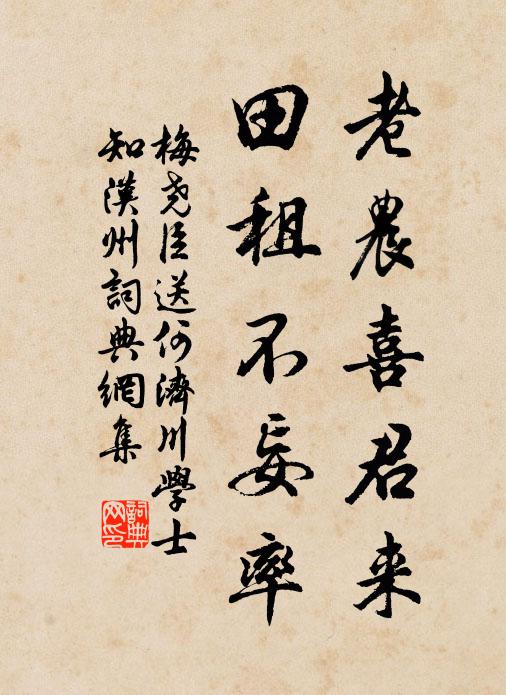 老農喜君来
田租不妄率
梅堯臣送何濟川學士
知漢州詞典網集
詞典网印